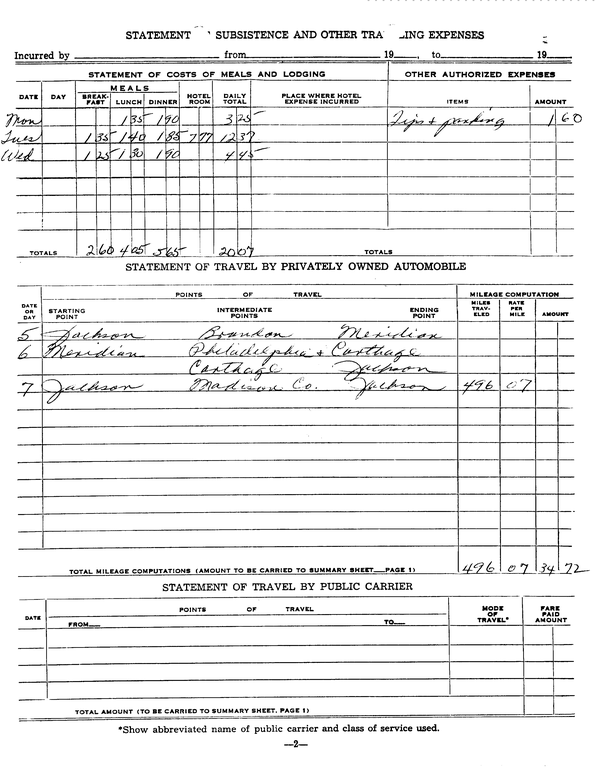 STATEMENT SUBSISTENCE AND OTHER EXPENSES
Incurred by from 19 , to 19
STATEMENT OF COSTS OF MEALS AND LODGING OTHER AUTHORIZED EXPENSES
DATE DAY MEALS BREAK-FAST LUNCH DINNER HOTEL ROOM DAILY TOTAL PLACE WHERE HOTEL EXPENSE INCURRED ITEMS AMOUNT
Mon 1 35 1 90 3 25 Tips & parking 1 60
Tues 1 35 1 40 1 85 7 77 12 37
Wed 1 25 1 30 1 90 4 45
TOTALS 2 60 4 05 5 65 20 07 TOTALS
STATEMENT OF TRAVEL BY PRIVATELY OWNED AUTOMOBILE
POINTS OF TRAVEL MILEAGE COMPUTATION
DATE OR DAY STARTING POINT INTERMEDIATE POINTS ENDING POINT MILES TRAV-ELED RATE PER MILE AMOUNT
5 Jackson Brandon Meridian
6 Meridian Philadelphia & Carthage
Carthage Jackson
7 Jackson Madison Co. Jackson 496 07
TOTAL MILEAGE COMPUTATIONS (AMOUNT TO BE CARRIED TO SUMMARY SHEET__PAGE 1) 496 07 34 72
STATEMENT OF TRAVEL BY PUBLIC CARRIER
DATE POINTS OF TRAVEL MODE OF TRAVEL* FARE PAID AMOUNT
FROM__ TO__
TOTAL AMOUNT (TO BE CARRIED TO SUMMARY SHEET, PAGE 1)
*Show abbreviated name of public carrier and class of service used.
—2—